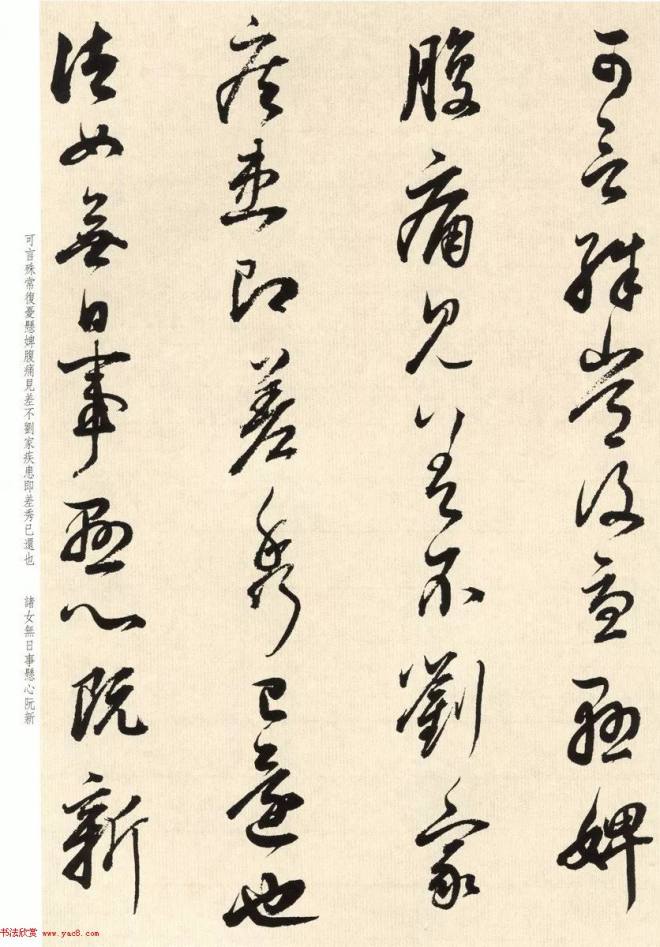 可言殊常復憂懸婢
腹痛見差不劉家
疾患即差秀已還也
諸女無日事懸心阮新
可言殊常復憂懸婢腹痛見差不劉家疾患即差秀已還也 諸女無日事懸心阮新
书法欣赏 www.yac8.com